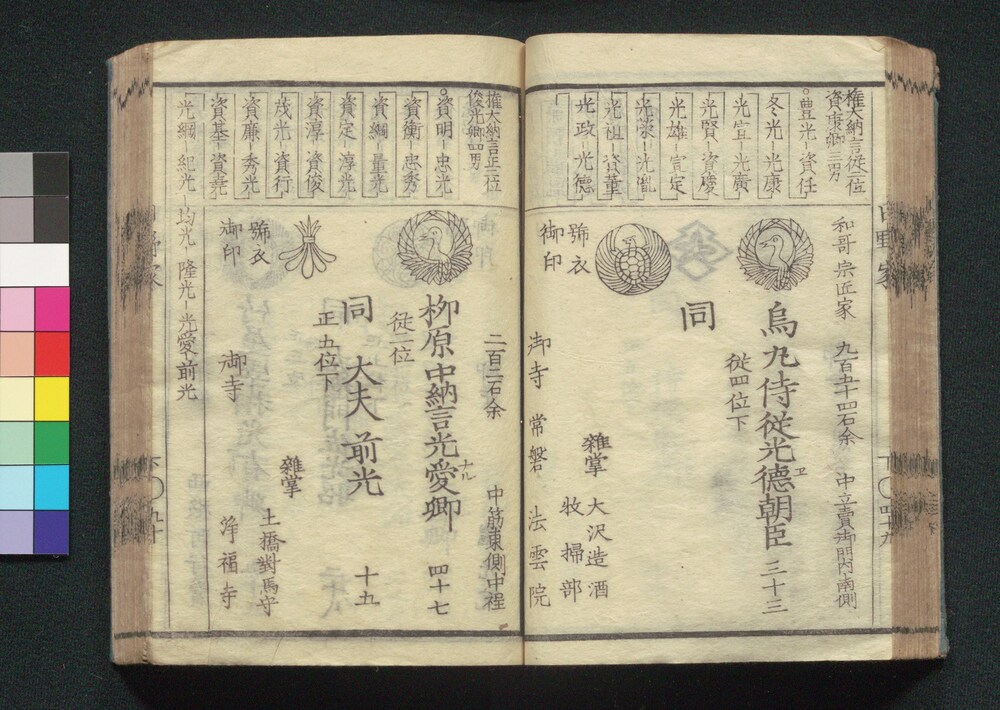 権大納言従一位
資康卿三男
豊光－資任
冬光－光康
光宣－光廣
光賢－資慶
光雄－宣定
光栄－光胤
光祖－資董
光政－光德
和哥宗匠家　九百五十四石余　中立賣御門内南側
烏丸侍従光德朝臣　三十三
従四位下
同
號衣
御印
雜掌　大沢造酒
牧掃部
御寺　常磐　法雲院
日野家
下　〇四十九
権大納言正二位
俊光卿四男
資明－忠光
資衡－忠秀
資綱－量光
資定－淳光
資淳－資俊
茂光－資行
資廉－秀光
資基－資堯
光綱－紀光－均光－隆光－光愛－前光
二百二石余　中筋東側中程
柳原中納言光愛卿　四十七
ナル
従二位
同　大夫前光　十五
正五位下
雜掌　土橋對馬守
號衣
御印
御寺　浄福寺
下　〇五十